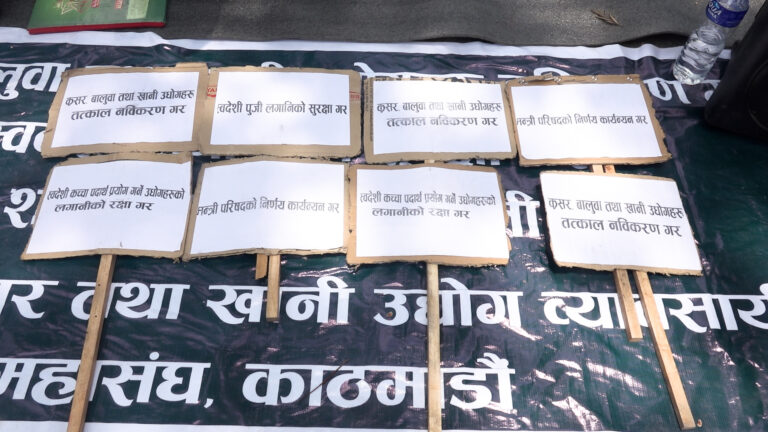 कसर, बालुवा तथा खानी उद्योगहरू
तत्काल नविकरण गर
स्वदेशी पुजी लगानिको सुरक्षा गर
कसर, बालुवा तथा खानी उद्योगहरू
तत्काल नविकरण गर
मन्त्री परिषदको निर्णय कार्यन्यन गर
स्वदेशी कच्चा पदार्थ प्रयोग गर्ने उद्योगहरूको
लगानीको रक्षा गर
मन्त्री परिषदको निर्णय कार्यन्यन गर
स्वदेशी कच्चा पदार्थ प्रयोग गर्ने उद्योगहरूको
लगानीको रक्षा गर
कसर, बालुवा तथा खानी उद्योगहरू
तत्काल नविकरण गर
तथा खानी उद्योग व्यवसायी
महासंघ, काठमाडौं